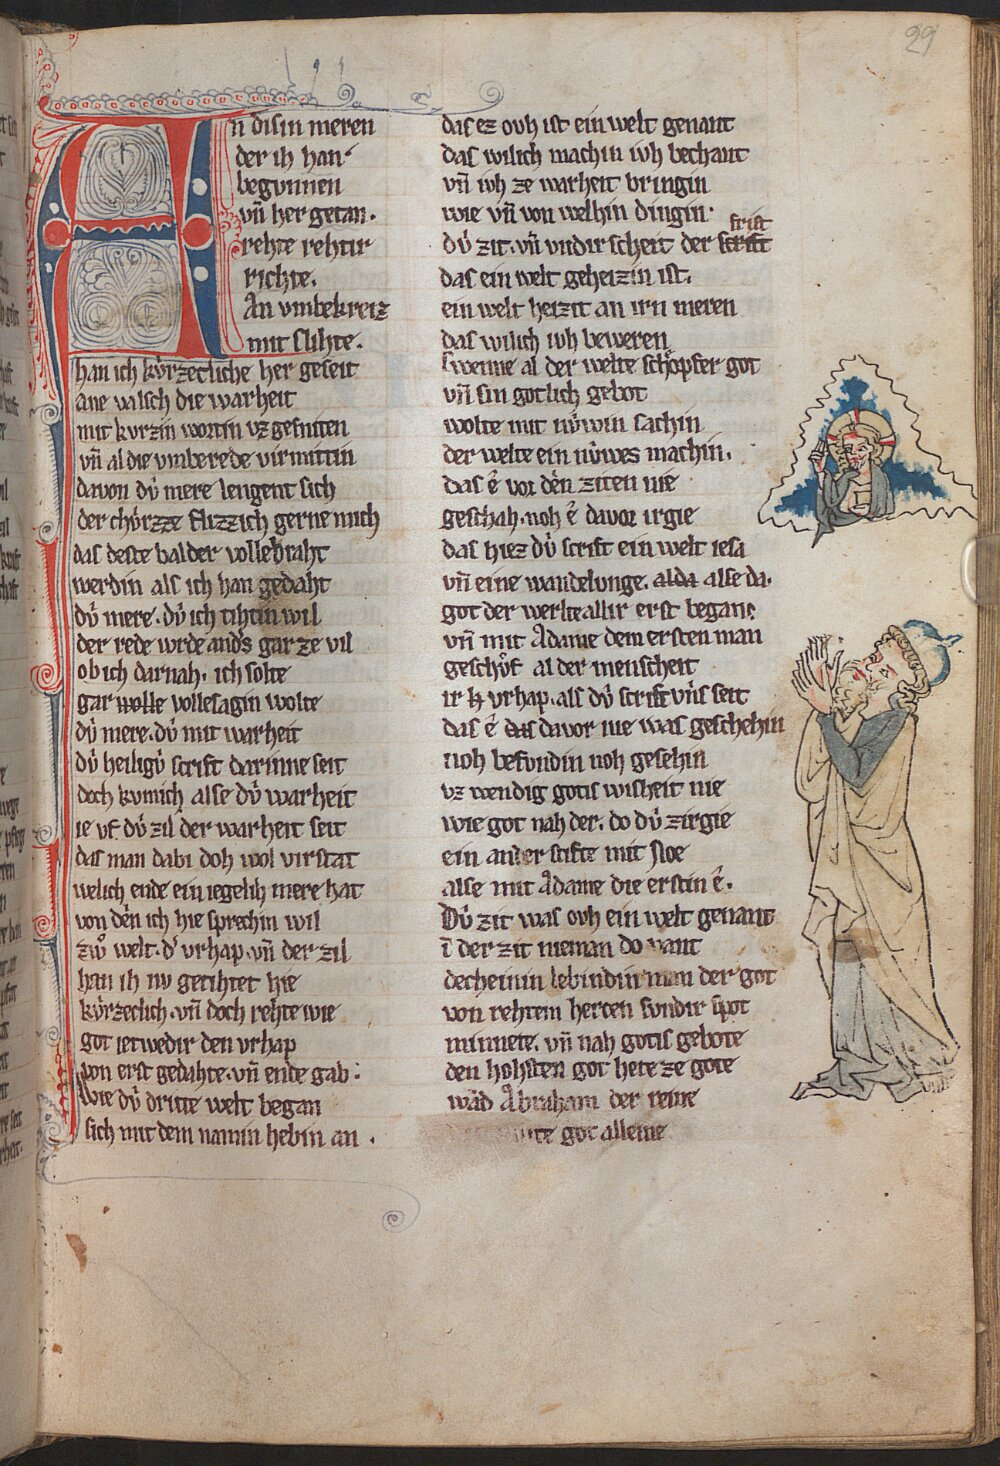 29
An disin meren
der ih han
begunnen
vn̄ her getan.
rehte rehtir
richte.
An vmbekreiz
mit slihte.
han ich kv̍rzecliche her geseit
ane valsch die warheit
mit kvrzin wortin vz gesniten
vn̄ al die vmberede virmittin
davon dv̍ mere lengent sich
der chv̍rzze flizzich gerne mich
das deste balder vollebraht
werdin als ich han gedaht
dv̍ mere. dv̍ ich tihtin wil
der rede wrde anders gar ze vil
ob ich darnah. ich solte
gar wolle vollesagin wolte
dv̍ mere. dv̍ mit warheit
dv̍ heiligv̍ scrift darinne seit
doch kvmich alse dv̍ warheit
ie vf dv̍ zil der warheit seit
das man dabi doh wol virstat
welich ende ein iegelih mere hat
von dēn ich hie sprechin wil
zwo welt. d' vrhap. vn̄ der zil
han ih nv getihtet hie
kv̍rzeclich. vn̄ doch rehte wie
got ietwedir den vrhap
von erst gedahte. vn̄ ende gab.
Wie dv̍ dritte welt began
sich mit dem namin hebin an.
das ez ovh ist ein welt genant
das wilich machin ivh bechant
vn̄ ivh ze warheit bringin
wie vn̄ von welhin dingin.
frist
dv̍ zit. vn̄ vndir scheit der scrift
das ein welt geheizin ist.
ein welt heizit an irn meren
das wilich ivh beweren
Swenne al der welte schöpfer got
vn̄ sin gotlich gebot
wolte mit nv̍win sachin
der welte ein nv̍wes machin.
das ê vor dēn ziten nie
geschah. noh ê davor irgie
das hiez dv̍ scrift ein welt iesa
vn̄ eine wandelvnge. alda alse da.
got der werlte allir erst began.
vn̄ mit Adame dem ersten man
geschv̍f al der menscheit
ir vrhap. als dv̍ scrift vns seit
das ê das davor nie was geschehin
noh befvndin noh gesehin
vz wendig gotis wisheit nie
wie got nah der. do dv̍ zirgie
ein ander stifte mit Noe
alse mit Adame die erstin ê.
Dv̍ zit was ovh ein welt genant
in der zit nieman do vant
decheinin lebindin man der got
von rehtem hercen svndir spot
minnete. vn̄ nah gotis gebote
den hohsten got hete ze gote
wād Abraham der reine
got alleine